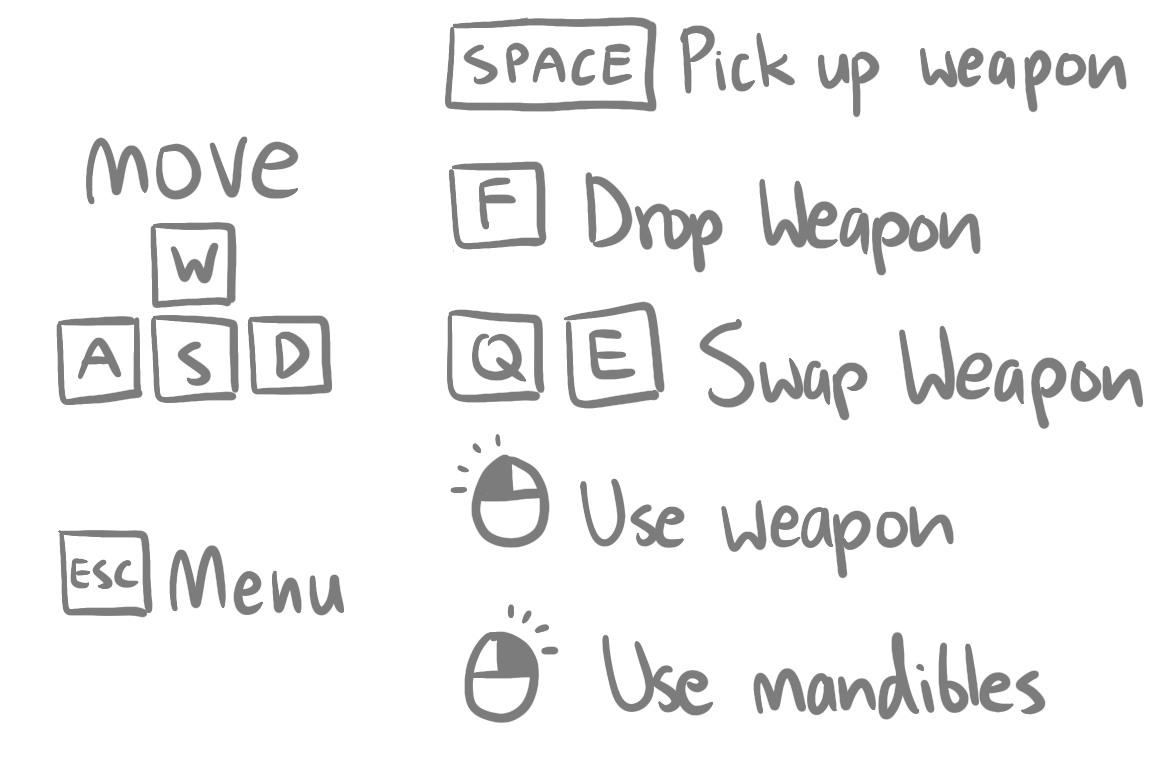 move
W
A S D
ESC Menu
SPACE Pick up weapon
F Drop Weapon
Q E Swap Weapon
Use weapon
Use mandibles